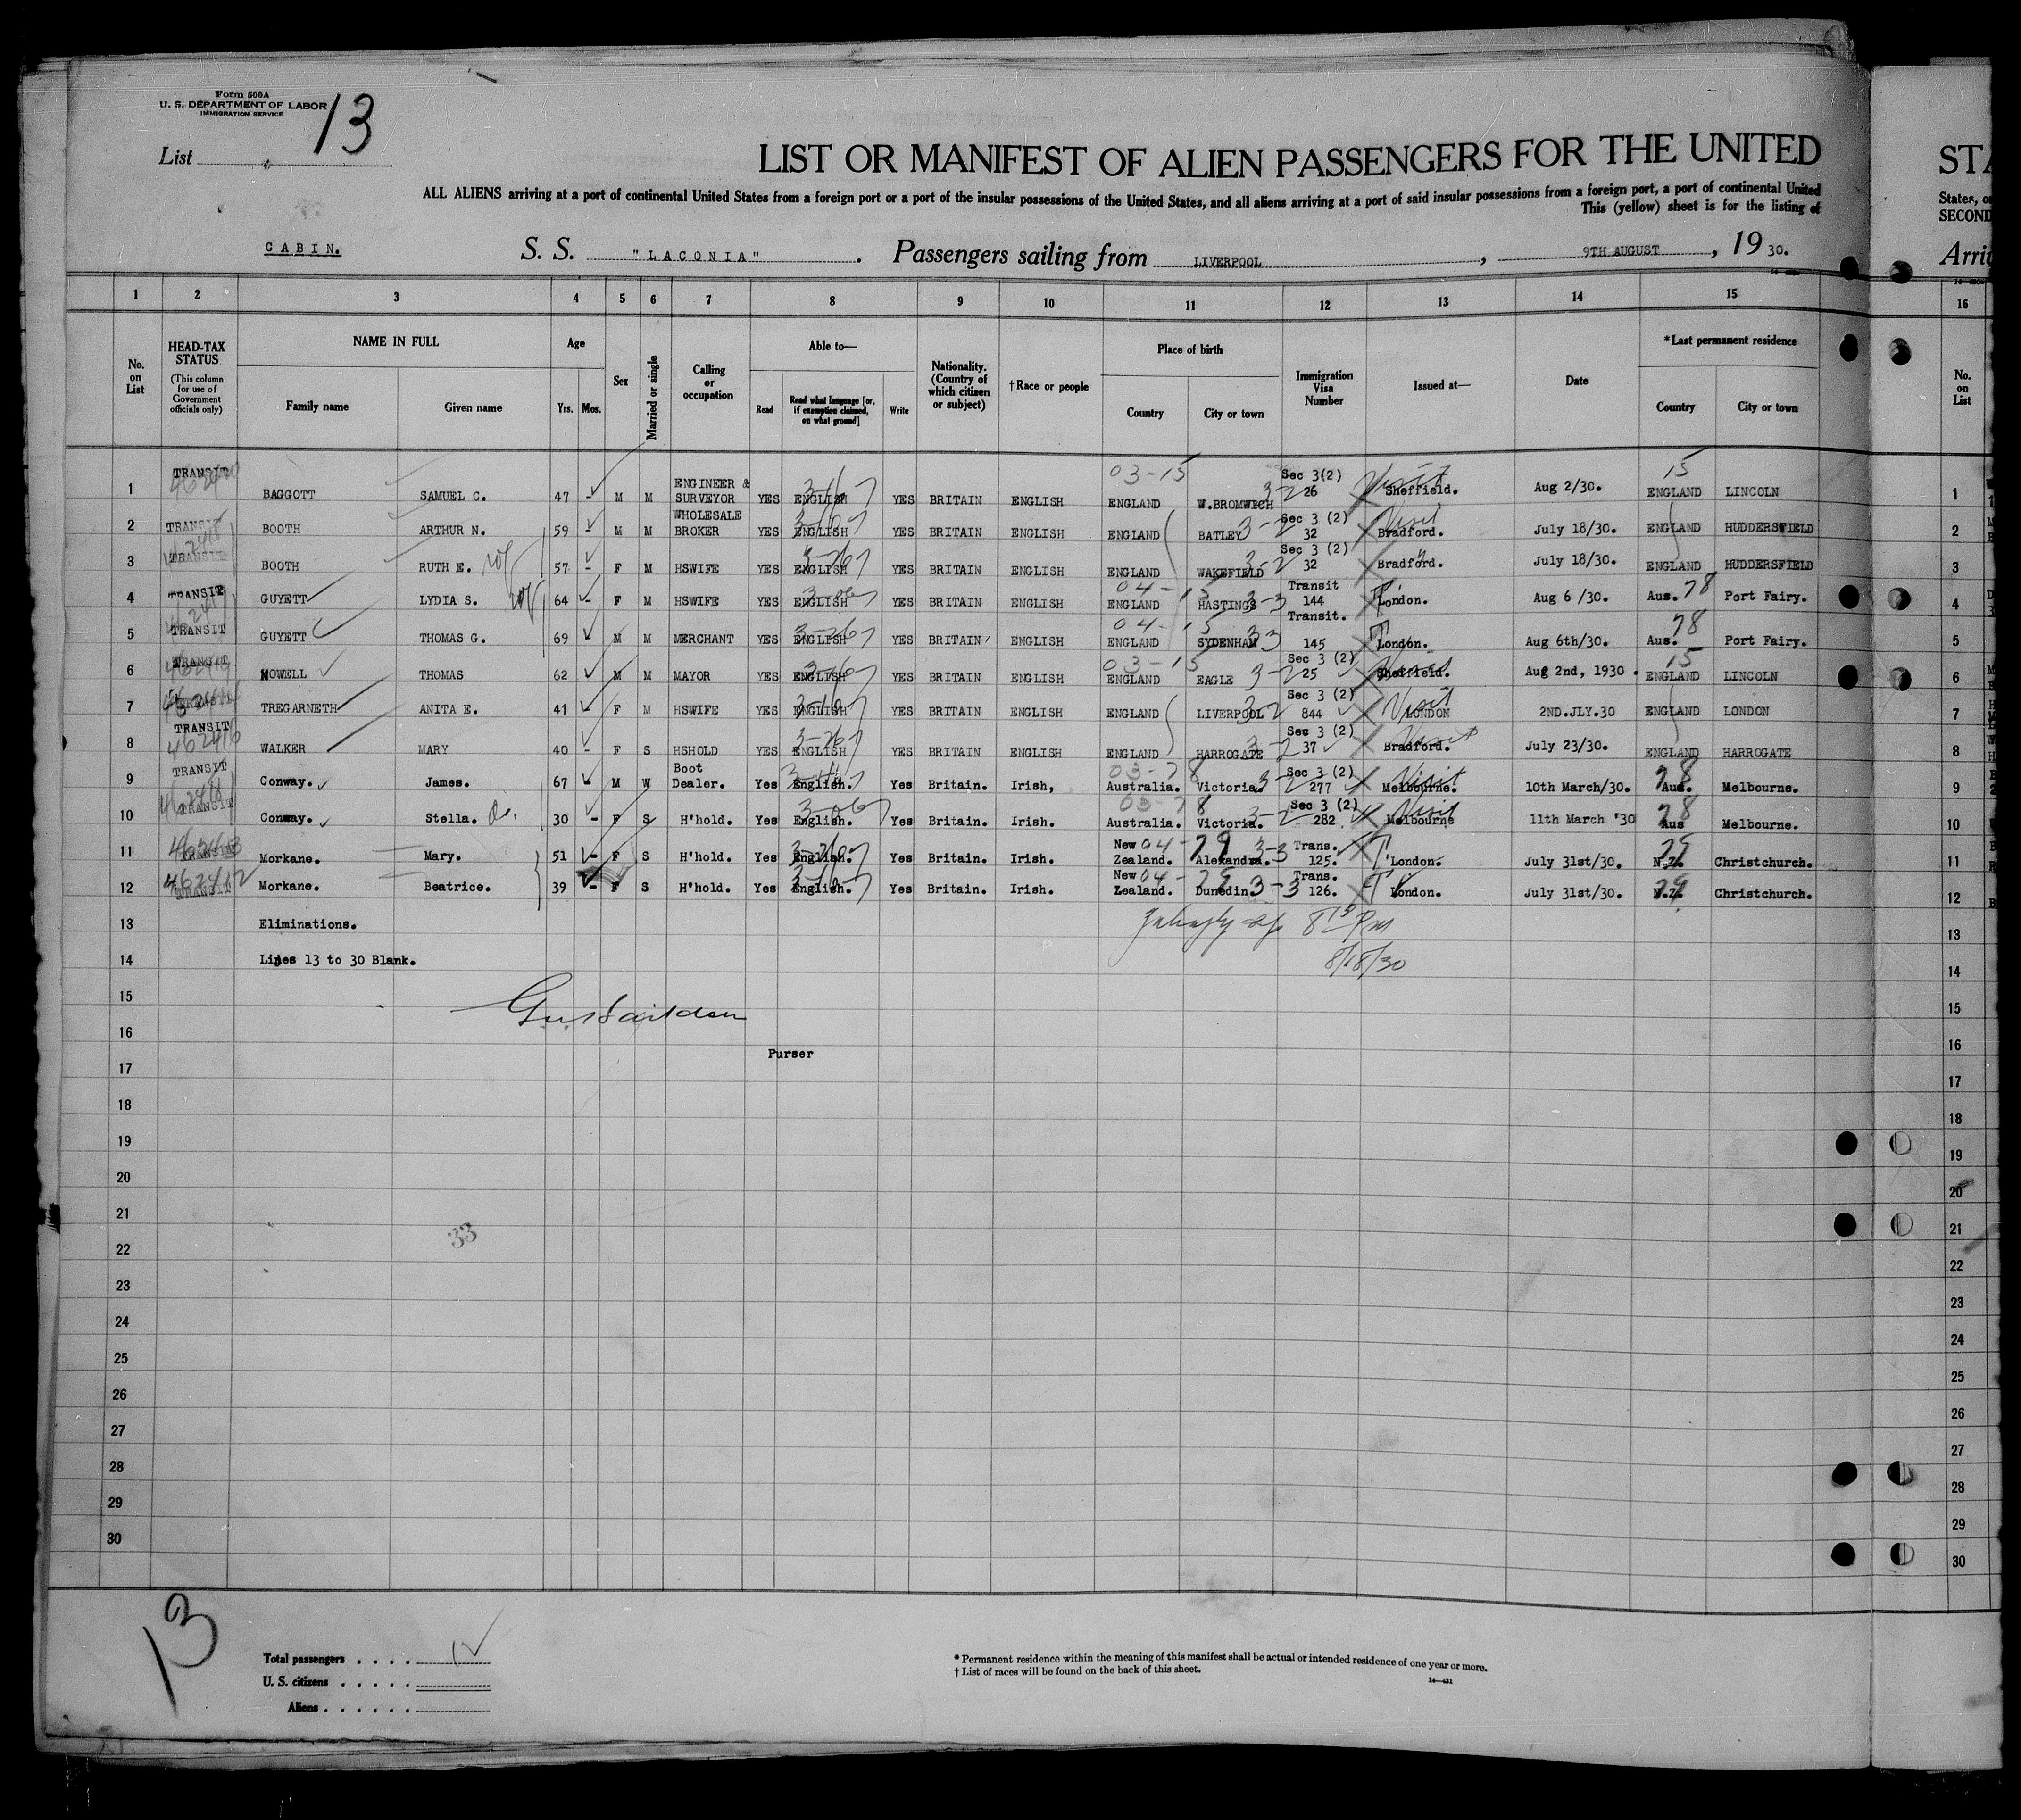 Form 500A
U. S. DEPARTMENT OF LABOR
IMMIGRATION SERVICE
13
List
LIST OR MANIFEST OF ALIEN PASSENGERS FOR THE UNITED
ALL ALIENS arriving at a port of continental United States from a foreign port or a port of the insular possessions of the United States, and all aliens arriving at a port of said insular possessions from a foreign port, a port of continental United
This (yellow) sheet is for the listing of
CABIN. S. S. "LACONIA". Passengers sailing from LIVERPOOL, 9TH AUGUST, 1930.
1 2 3 4 5 6 7 8 9 10 11 12 13 14 15
No. on List
HEAD-TAX STATUS
(This column for use of Government officials only)
NAME IN FULL
Family name Given name
Age
Yrs. Mos.
Sex
Married or single
Calling or occupation
Able to—
Read
Read what language [or, if exemption claimed, on what ground]
Write
Nationality. (Country of which citizen or subject)
†Race or people
Place of birth
Country City or town
Immigration Visa Number
Issued at—
Date
*Last permanent residence
Country City or town
1 TRANSIT BAGGOTT SAMUEL C. 47 - M M ENGINEER & SURVEYOR YES ENGLISH YES BRITAIN ENGLISH 03-15 ENGLAND W.BROMWICH 3-2 Sec 3(2) 26 Visit Sheffield. Aug 2/30. 15 ENGLAND LINCOLN
2 TRANSIT BOOTH ARTHUR N. 59 - M M WHOLESALE BROKER YES ENGLISH YES BRITAIN ENGLISH ENGLAND BATLEY 3-2 Sec 3 (2) 32 Visit Bradford. July 18/30. ENGLAND HUDDERSFIELD
3 TRANSIT BOOTH RUTH E. wf 57 - F M HSWIFE YES ENGLISH YES BRITAIN ENGLISH ENGLAND WAKEFIELD 3-2 Sec 3 (2) 32 Bradford. July 18/30. ENGLAND HUDDERSFIELD
4 TRANSIT GUYETT LYDIA S. wf 64 - F M HSWIFE YES ENGLISH YES BRITAIN ENGLISH 04-15 ENGLAND HASTINGS 3-3 Transit 144 T London. Aug 6 /30. Aus. 78 Port Fairy.
5 TRANSIT GUYETT THOMAS G. 69 M M MERCHANT YES ENGLISH YES BRITAIN ENGLISH 04-15 ENGLAND SYDENHAM 33 Transit. 145 T London. Aug 6th/30. Aus. 78 Port Fairy.
6 TRANSIT NOWELL THOMAS 62 M M MAYOR YES ENGLISH YES BRITAIN ENGLISH 03-15 ENGLAND EAGLE 3-2 Sec 3 (2) 25 Sheffield. Aug 2nd, 1930. 15 ENGLAND LINCOLN
7 TREGARNETH ANITA E. 41 F M HSWIFE YES ENGLISH YES BRITAIN ENGLISH ENGLAND LIVERPOOL 3-2 Sec 3 (2) 844 Visit LONDON 2ND.JLY.30 ENGLAND LONDON
8 TRANSIT WALKER MARY 40 - F S HSHOLD YES ENGLISH YES BRITAIN ENGLISH ENGLAND HARROGATE 3-2 Sec 3 (2) 37 Visit Bradford. July 23/30. ENGLAND HARROGATE
9 TRANSIT Conway. James. 67 - M W Boot Dealer. Yes English. Yes Britain. Irish, 03-78 Australia. Victoria. 3-2 Sec 3 (2) 277 Visit Melbourne. 10th March/30. 78 Aus. Melbourne.
10 TRANSIT Conway. Stella. Da. 30 - F S H'hold. Yes English. Yes Britain. Irish. 03-78 Australia. Victoria. 3-2 Sec 3 (2) 282 Visit Melbourne 11th March '30 78 Aus Melbourne.
11 TRANSIT Morkane. Mary. 51 - F S H'hold. Yes English. Yes Britain. Irish. 04-79 New Zealand. Alexandra. 3-3 Trans. 125. T London. July 31st/30. N.Z. Christchurch.
12 462412 TRANSIT Morkane. Beatrice. 39 - F S H'hold. Yes English. Yes Britain. Irish. 04-79 New Zealand. Dunedin 3-3 Trans. 126. T London. July 31st/30. N.Z. Christchurch.
13 Eliminations.
8/18/30
14 Lines 13 to 30 Blank.
15
16
Purser
17
18
19
20
21
33
22
23
24
25
26
27
28
29
30
13
Total passengers . . . . 12
U. S. citizens . . . . .
Aliens . . . . . .
* Permanent residence within the meaning of this manifest shall be actual or intended residence of one year or more.
† List of races will be found on the back of this sheet.
STA
States, o
SECOND
Arri
16
No. on List
1
2
3
4
5
6
7
8
9
10
11
12
13
14
15
16
17
18
19
20
21
22
23
24
25
26
27
28
29
30